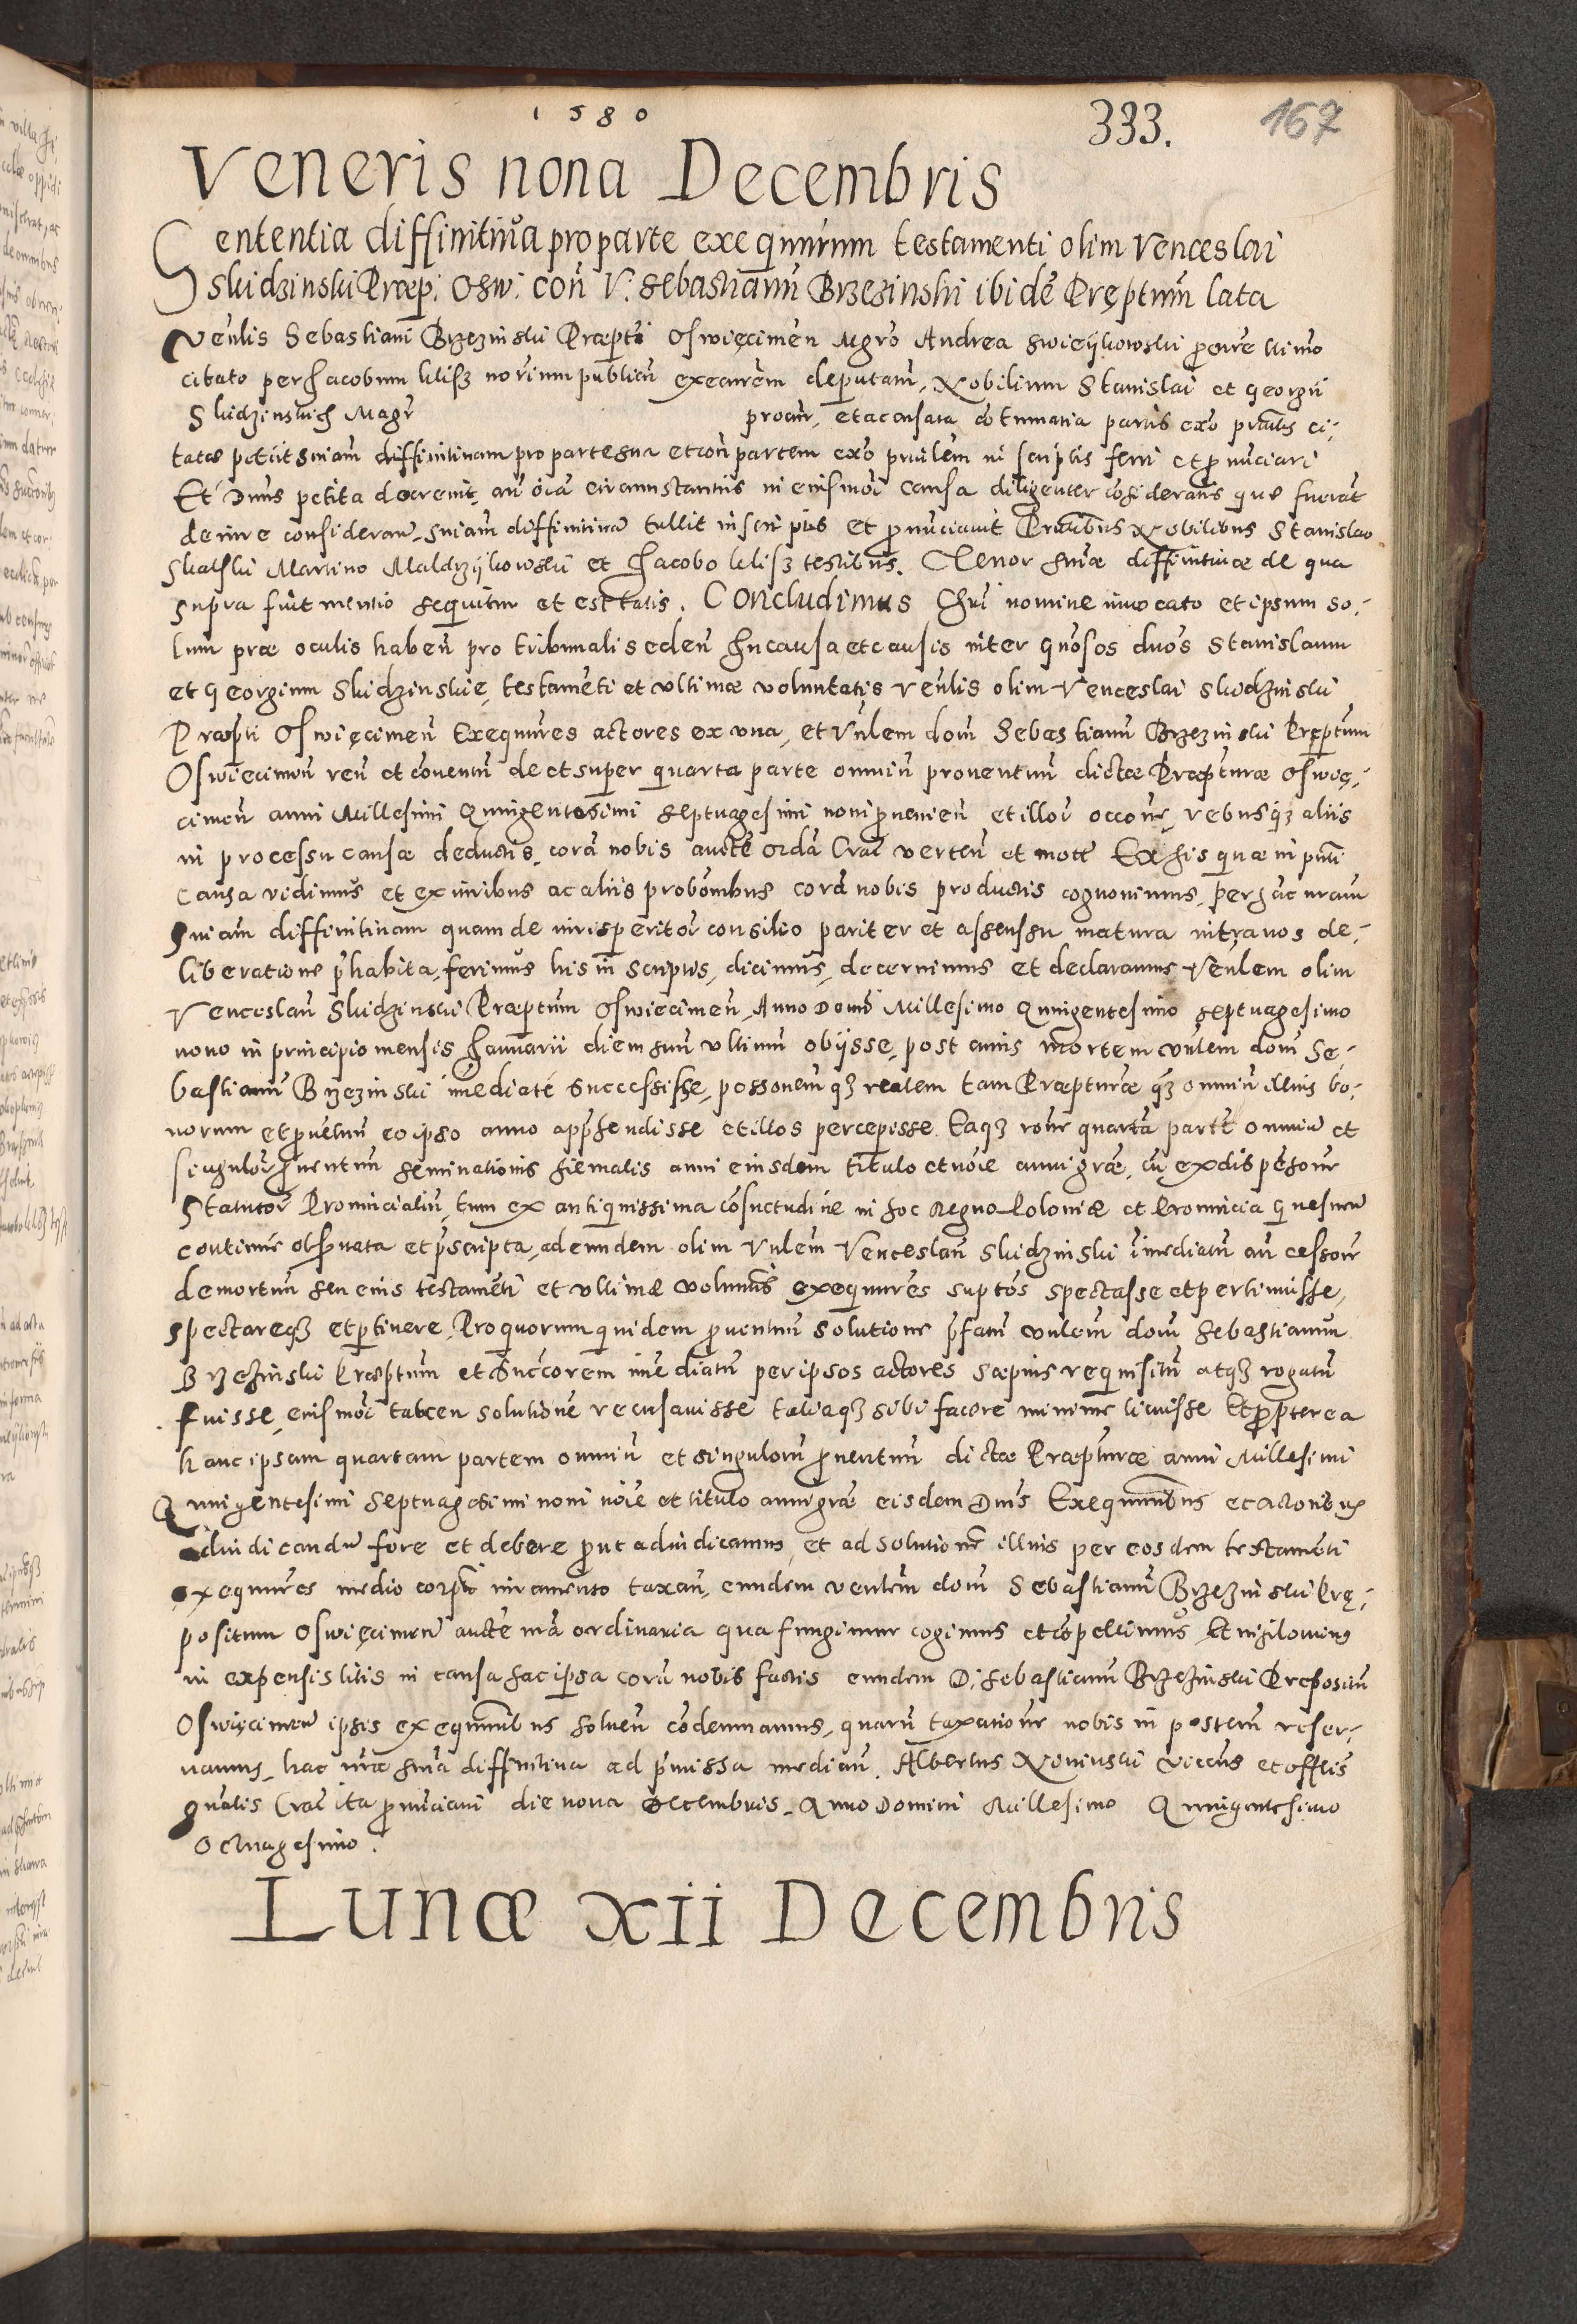 1580
333. 167
Veneris nona Decembris
Sententia diffinitiva pro parte exequutorum testamenti olim Venceslai
Skidzinski Præp. Osw. con̄ V. Sebastianū Brzezinski ibidē Pręptum̄ lata
Venlis Sebastiani Brzezinski Præpti Oswięcimen̄ Mgro Andrea
citato per Jacobum Klisz norium publicū deputatā, Nobilium Stanislai et Georgii
Skidzinskich Magr procur, et accusata cōtumatia partis exo pntis ci-
tatæ petiit sniam diffinitivam pro parte sua et con̄ partem exo in scriptis ferri et pnūciari
Et Dnus petita decrevit, circumstantiis in eiusmoi causa diligenter cōsideratis que fuerāt
de iure considerand, sniam diffinitivā tullit in scriptis et pnūciavit Pntibus Nobilibus Stanislao
Skalski Martino Maldrzijkowski et Jacobo Klisz testibus. Tenor sniæ diffinitivæ de qua
supra fuit mentio sequitur et est talis. Concludimus Chri nomine invocato et ipsum so-
lum præ oculis haben̄ pro tribunali seden̄ In causa et causis inter gnosos dnos Stanislaum
et Georgium Skidzinskie, testamēti et ultimæ voluntatis Venlis olim Venceslai Skidzinski
Præpti Oswięcimen̄ Exequutres actores ex una, et Vnlem dom̄ Sebastianū Brzezinski Pręptum
Oswięcimen̄ reū et cōventū de et super quarta parte omniū proventuū dictæ Præpturæ Oswię-
cimen̄ anni Millesimi Quingentesimi septuagesimi noni pvenien̄ et illor occone, rebusq3 aliis
in processu causæ deductis, corā nobis aucte ordā Crac verten̄ et mot Ex his quæ in pnti
causa vidimus et ex iuribus ac aliis probōnibus corā nobis productis cognovimus, per hāc nram
sniam diffinitivam quam de iurisperitor consilio pariter et assensu matura intra nos de-
liberatione phabita, ferimus his in scriptis, dicimus, decernimus et declaramus Venlem olim
Venceslaū Skidzinski Præptum Oswięcimen̄, Anno Domi Millesimo Quingentesimo septuagesimo
nono in principio mensis Januarii diem suū ultimū obijsse, post cuius mortem vnlem dom̄ Se-
bastianū Brzezinski imediate successisse, possonem q3 realem tam Præpturæ q3 omniū illius bo-
norum et pvetuū eo ipso anno apphendisse et illos percepisse. Eaq3 rone quartā partē omniū et
singulor pventuū seminationis hiemalis anni eiusdem titulo et noie anni græ, tū ex dispōsone
Statutor Provincialiū, tum ex antiquissima cōsuetudine in hoc Regno Poloniæ et Provincia Gnesnen
continue obseruata et pscripta, ad eundem olim Vnlem Venceslaū Skidzinski imediatū an̄cessore
demortuū seu eius testamēti et ultimæ voluntis exequutres suptos spectasse et pertinuisse,
spectareq3 et ptinere, Pro quorum quidem pventuū solutione pfatū vnlem dom̄ Sebastianum
Brzezinski Præptum et Succorem imediatū per ipsos actores sæpius requisitū atq3 rogatū
fuisse, eiusmōi tamen solutionē recusavisse taliaq3 sibi facere minime licuisse Et ppterea
hanc ipsam quartam partem omniū et singulorū pventuū dictæ Præpturæ anni Millesimi
Quingentesimi Septuagesimi noni noie et titulo anni græ eisdem Dnis Exequutribus et actoribus
Adiudicandū fore et debere put adiudicamus, et ad solutione illius per eosdem testamēti
exequutres medio corpti iuramento taxan̄, eundem venlem dom̄ Sebastianū Brzezinski Prę-
positum Oswięcimen̄ aucte nrā ordinaria qua fungimur cogimus et cōpellimus Et nihilominus
in expensis litis in causa hac ipsa corā nobis factis eundem D. Sebastianū Brzezinski Prepositū
Oswięcimen̄ ipsis exequutribus solven̄ cōdemnamus, quarū taxatione nobis in posterū reser-
vamus, hac nra snia diffinitiva ad pmissa median̄. Albertus Nowinski vicēus et offlis
gnalis Crac ita pnūciavi die nona Decembris, Anno Domini Millesimo Quingentesimo
octuagesimo.
Lunæ xii Decembris